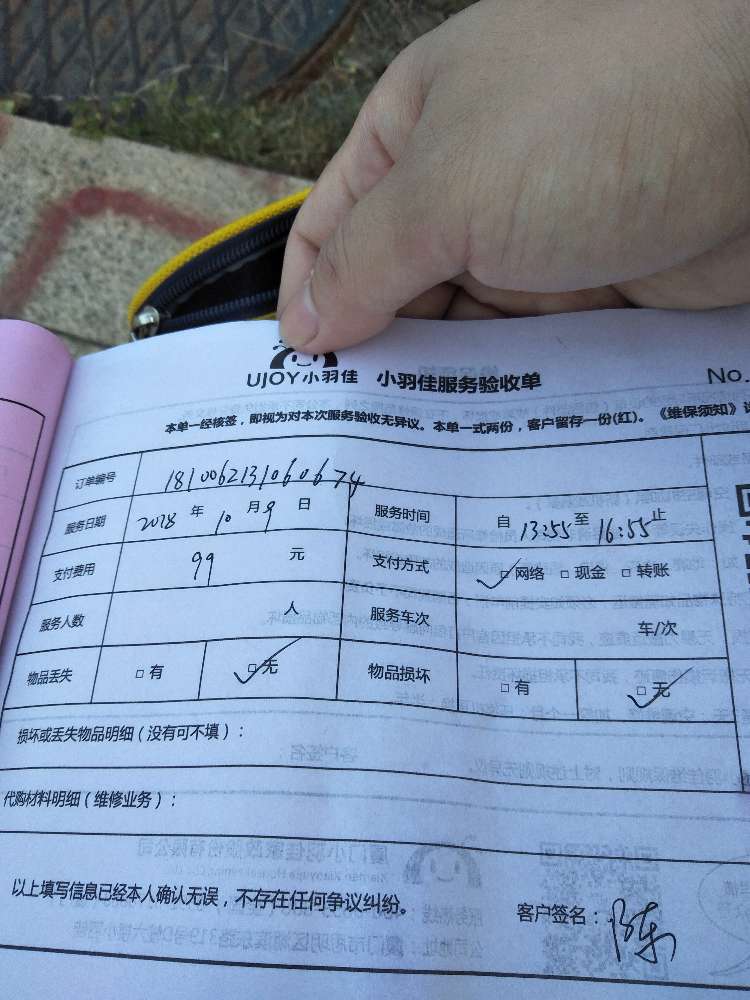 UJOY小羽佳 小羽佳服务验收单 No.
本单一经核签，即视为对本次服务验收无异议。本单一式两份，客户留存一份(红)。《维保须知》
订单编号 1810062131060674
服务日期 2018 年 10 月 9 日 服务时间 自 13:55 至 16:55 止
支付费用 99 元 支付方式 □网络 □现金 □转账
服务人数 人 服务车次 车/次
物品丢失 □有 □无 物品损坏 □有 □无
损坏或丢失物品明细（没有可不填）：
代购材料明细（维修业务）：
以上填写信息已经本人确认无误，不存在任何争议纠纷。 客户签名：陈